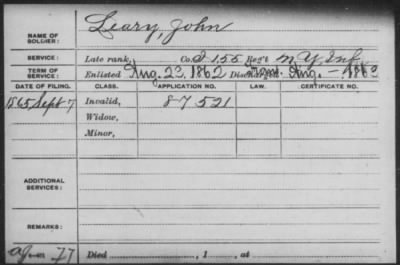 NAME OF SOLDIER: Leary, John
SERVICE: Late rank, Co. D 155 Reg't N.Y. Inf
TERM OF SERVICE: Enlisted Aug. 22, 1862 Discharged Aug. — 186
DATE OF FILING. CLASS. APPLICATION NO. LAW. CERTIFICATE NO.
1865 Sept 7 Invalid, 87521
Widow,
Minor,
ADDITIONAL SERVICES:
REMARKS:
77 Died , 1 , at